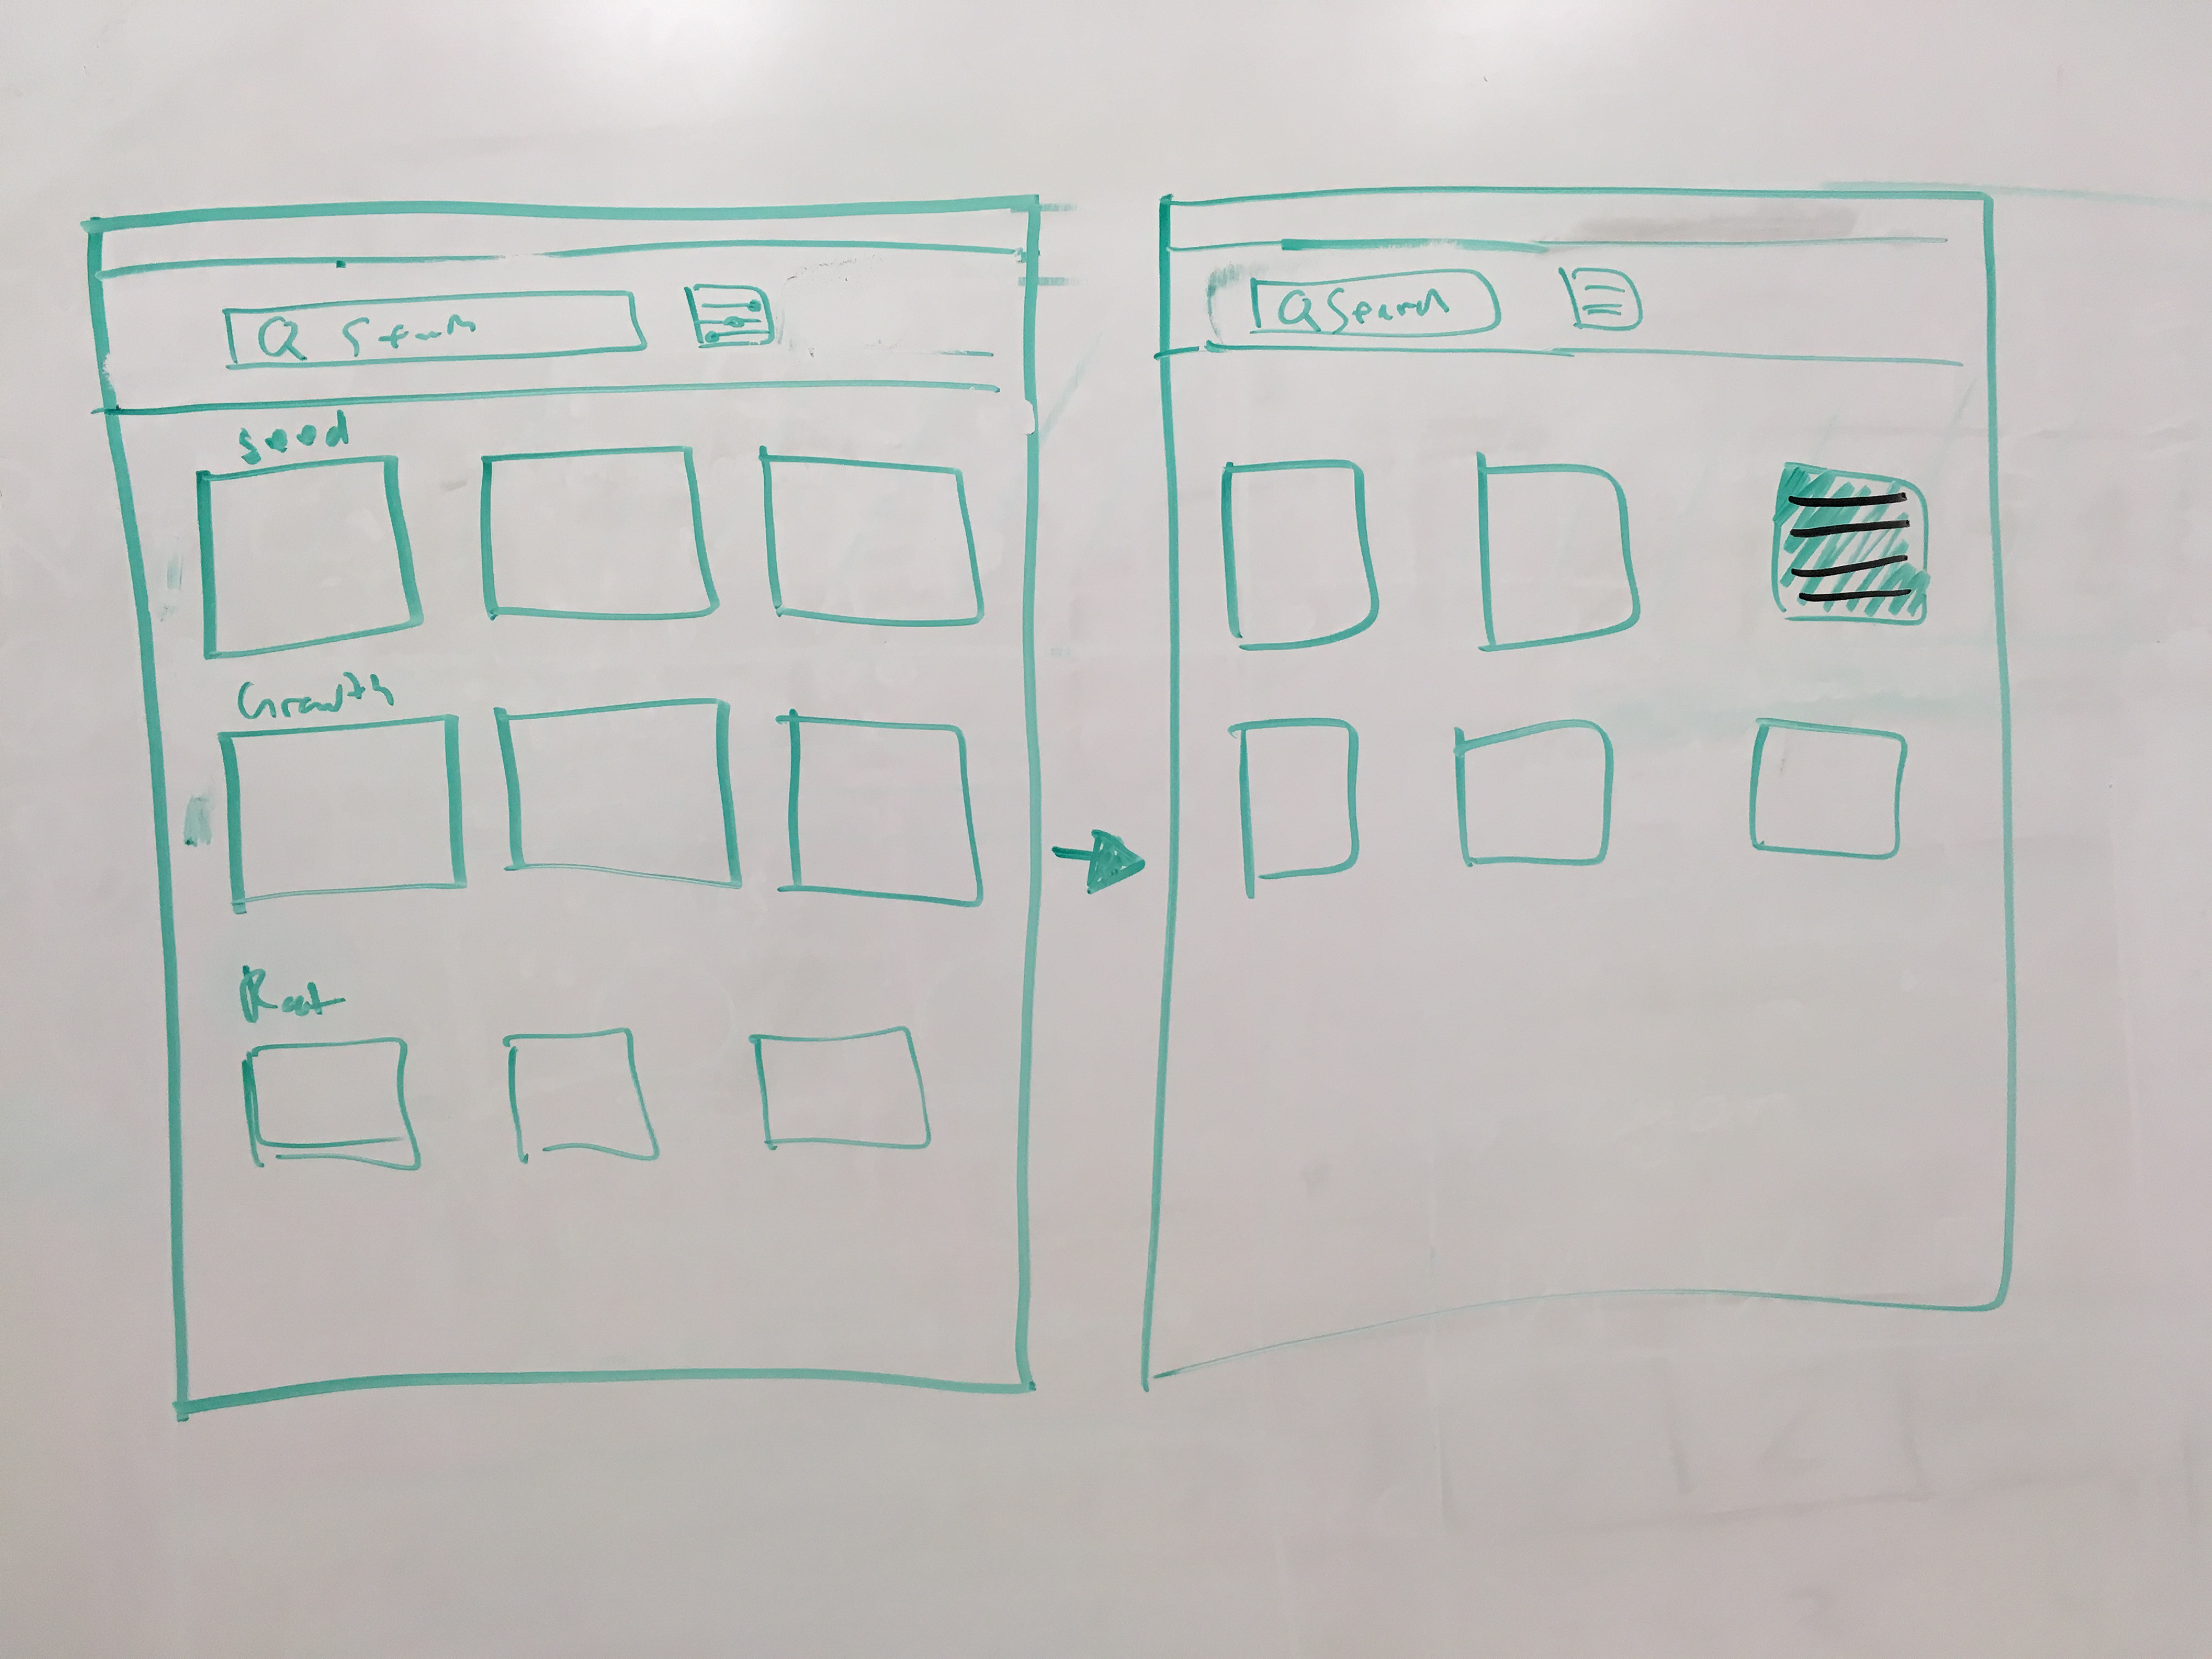 Search
Seed
Growth
Root
Search